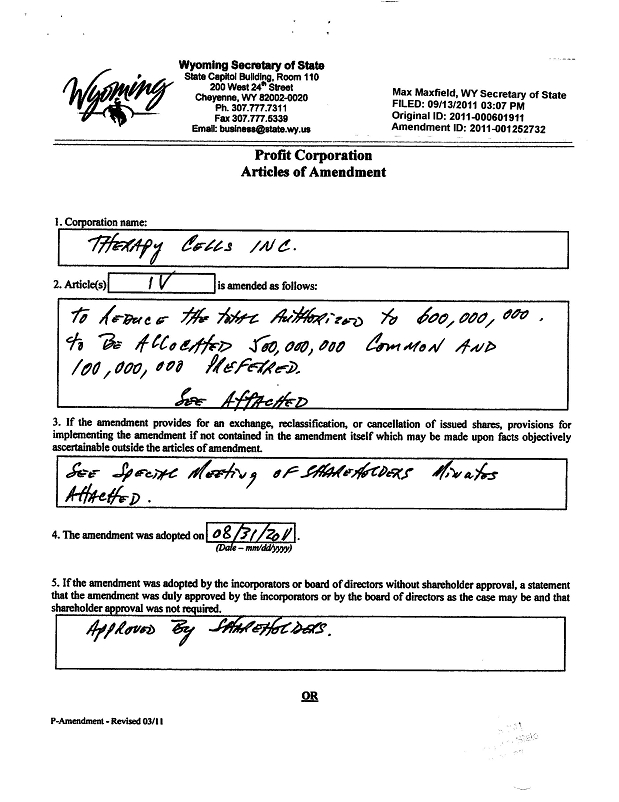 Wyoming
Wyoming Secretary of State
State Capitol Building, Room 110
200 West 24th Street
Cheyenne, WY 82002-0020
Ph. 307.777.7311
Fax 307.777.5339
Email: business@state.wy.us
Max Maxfield, WY Secretary of State
FILED: 09/13/2011 03:07 PM
Original ID: 2011-000601911
Amendment ID: 2011-001252732
Profit Corporation
Articles of Amendment
1. Corporation name:
THERAPY CELLS INC.
2. Article(s) IV is amended as follows:
TO REDUCE THE TOTAL AUTHORIZED TO 600,000,000.
TO BE ALLOCATED 500,000,000 COMMON AND
100,000,000 PREFERRED.
SEE ATTACHED
3. If the amendment provides for an exchange, reclassification, or cancellation of issued shares, provisions for
implementing the amendment if not contained in the amendment itself which may be made upon facts objectively
ascertainable outside the articles of amendment.
SEE SPECIAL MEETING OF SHAREHOLDERS MINUTES
ATTACHED.
4. The amendment was adopted on 08/31/2011.
(Date – mm/dd/yyyy)
5. If the amendment was adopted by the incorporators or board of directors without shareholder approval, a statement
that the amendment was duly approved by the incorporators or by the board of directors as the case may be and that
shareholder approval was not required.
APPROVED BY SHAREHOLDERS.
OR
P-Amendment - Revised 03/11